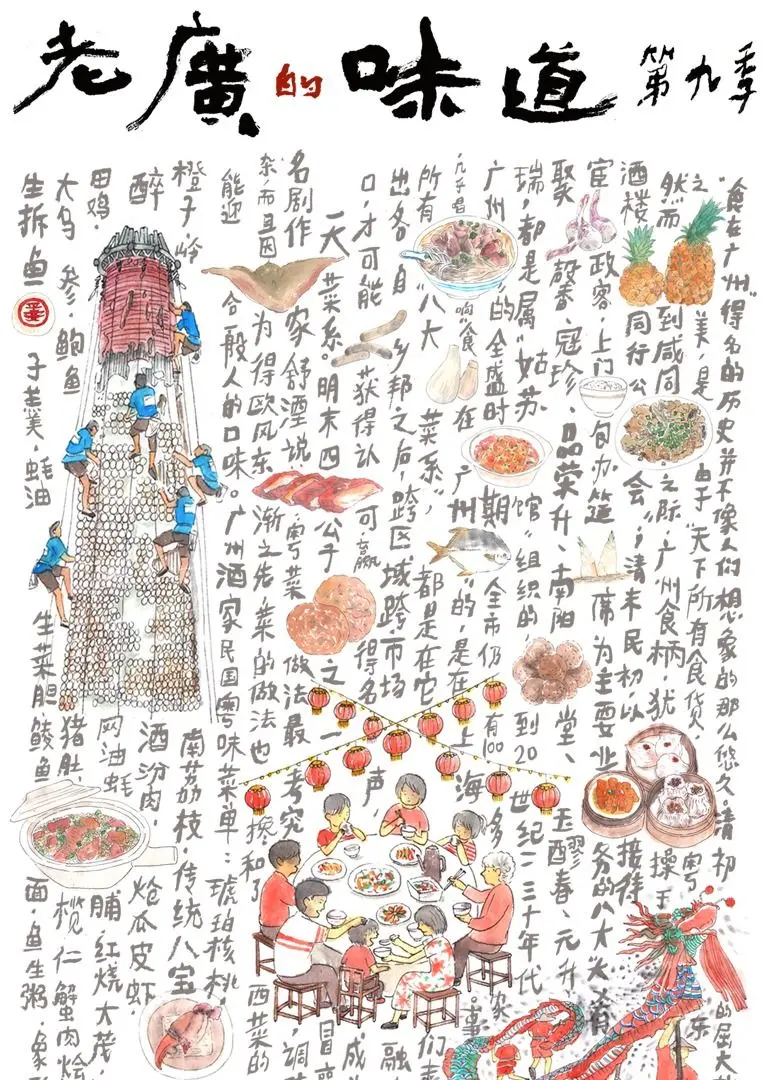 老廣的味道 第九季
“食在广州”得名的历史并不像人们想象的那么悠久，清初的屈大
之美，是由于“天下所有食货，粤东
然而到咸同之际，广州食柄，犹操于
酒楼同行公会”，清末民初，以接待
宦政客，上门包办筵席为主要业务的八大大肴
聚馨、冠珍、品荣升、南阳堂、玉醪春、元升
瑞，都是属“姑苏馆”组织的，到20世纪二三十年代
广州的全盛时期全市仍有100多家
几乎唱响“食在广州的，是在上海。事
所有“八大菜系”，都是在它们
出各自乡邦之后，跨区域跨市场融
口，才可能获得认可，赢得名声，成
一大菜系。明末四公子之一冒
名剧作家舒湮说：粤菜做法最考究，调
杂，而且因为得欧风东渐之先，菜的做法也掺和了西菜的
能迎合一般人的口味。广州酒家民国粤味菜单：琥珀核桃，
橙子，岭南荔枝，传统八宝
醉酒汾肉，炝瓜皮虾，
田鸡，网油蚝脯，红烧大茂，
大乌参，鲍鱼猪肚，榄仁蟹肉烩
生拆鱼子羹，蚝油生菜胆鲮鱼面，鱼生粥，象形